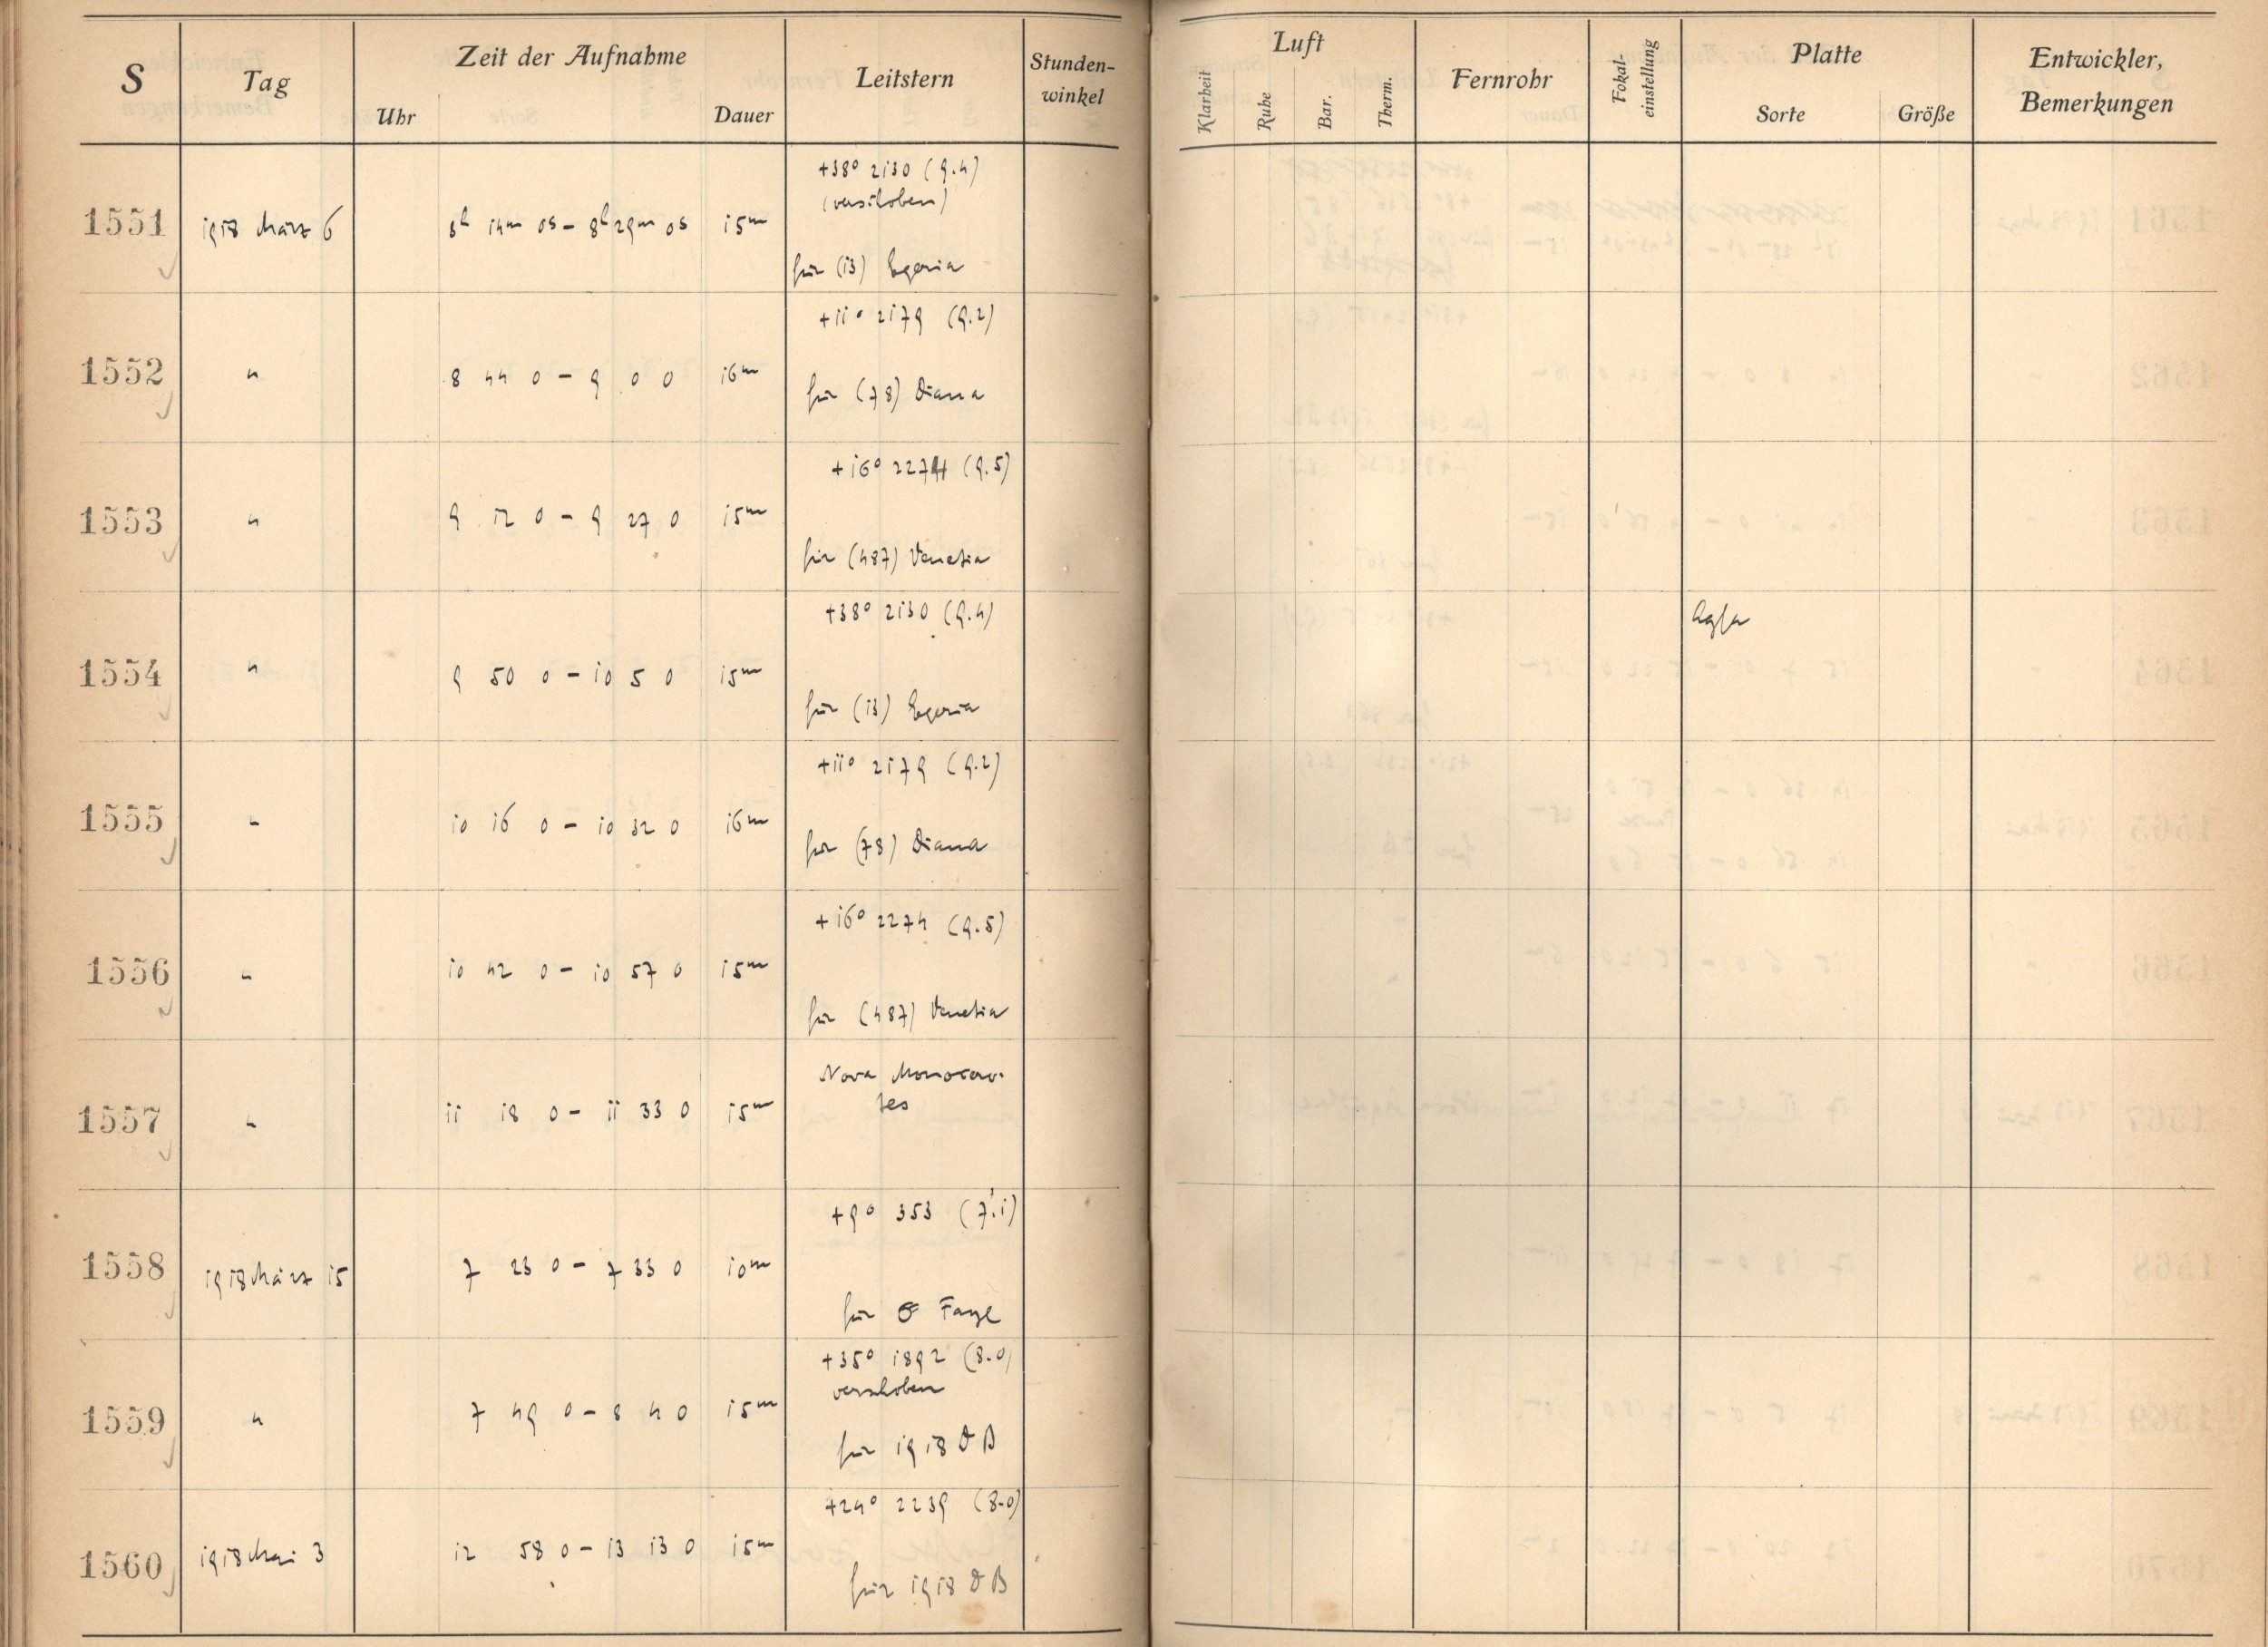 S Tag Zeit der Aufnahme Leitstern Stunden- Luft Fernrohr Fokal- Platte Entwickler,
Uhr Dauer winkel Klarheit Ruhe Bar. Therm. einstellung Sorte Größe Bemerkungen
+38° 2130 (9.4)
(verschoben)
1551 1918 März 6 8h 14m 0s - 8h 29m 0s 15m
für (13) Egeria
+11° 2179 (9.2)
1552 " 8 44 0 - 9 0 0 16m
für (78) Diana
+16° 2274 (9.5)
1553 " 9 12 0 - 9 27 0 15m
für (487) Venetia
+38° 2130 (9.4) Agfa
1554 " 9 50 0 - 10 5 0 15m
für (13) Egeria
+11° 2179 (9.2)
1555 " 10 16 0 - 10 32 0 16m
für (78) Diana
+16° 2274 (9.5)
1556 " 10 42 0 - 10 57 0 15m
für (487) Venetia
Nova Monocero-
tes
1557 " 11 18 0 - 11 33 0 15m
+9° 353 (7.1)
1558 1918 März 15 7 23 0 - 7 33 0 10m
für ☄ Faye
+35° 1892 (8.0)
verschoben
1559 " 7 49 0 - 8 4 0 15m
für 1918 DB
+24° 2239 (8.0)
1560 1918 Mai 3 12 58 0 - 13 13 0 15m
für 1918 DB